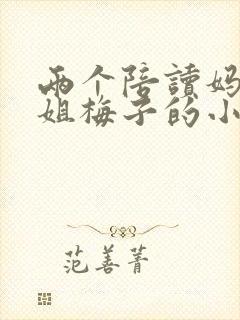 两个陪讀妈
姐梅子的小
范善菁